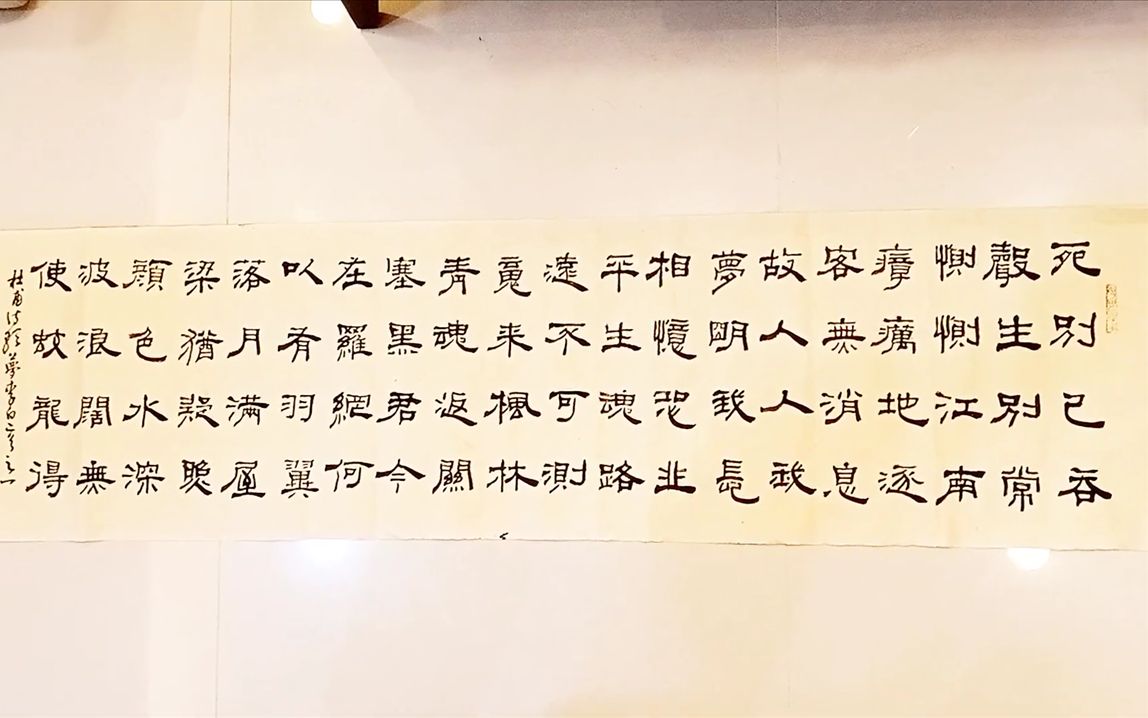 死別已吞
聲生別常
惻惻江南
瘴癘地逐
客無消息
故人入我
夢明我長
相憶恐非
平生魂路
遠不可測
魂来楓林
青魂返關
塞黑君今
在羅網何
以有羽翼
落月滿屋
梁猶疑照
顏色水深
波浪闊無
使蛟龍得
杜甫诗夢李白二首之一